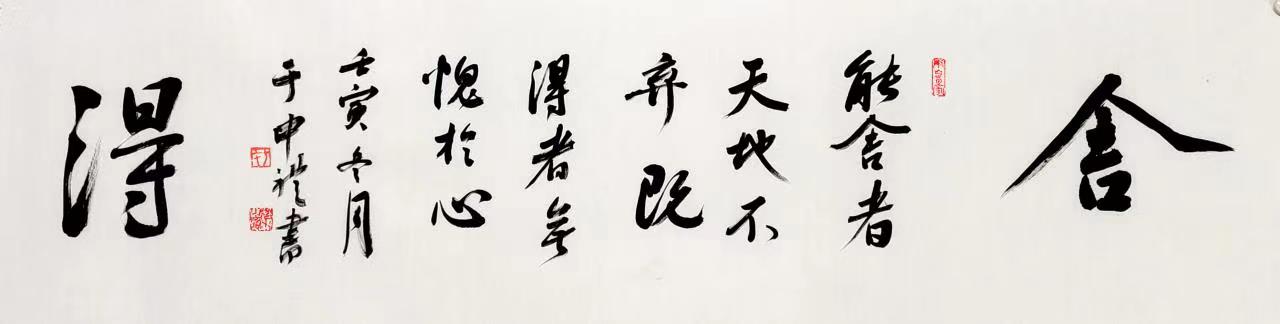 舍
能舍者
天地不
弃既
得者無
愧於心
壬寅冬月
于申禮書
得